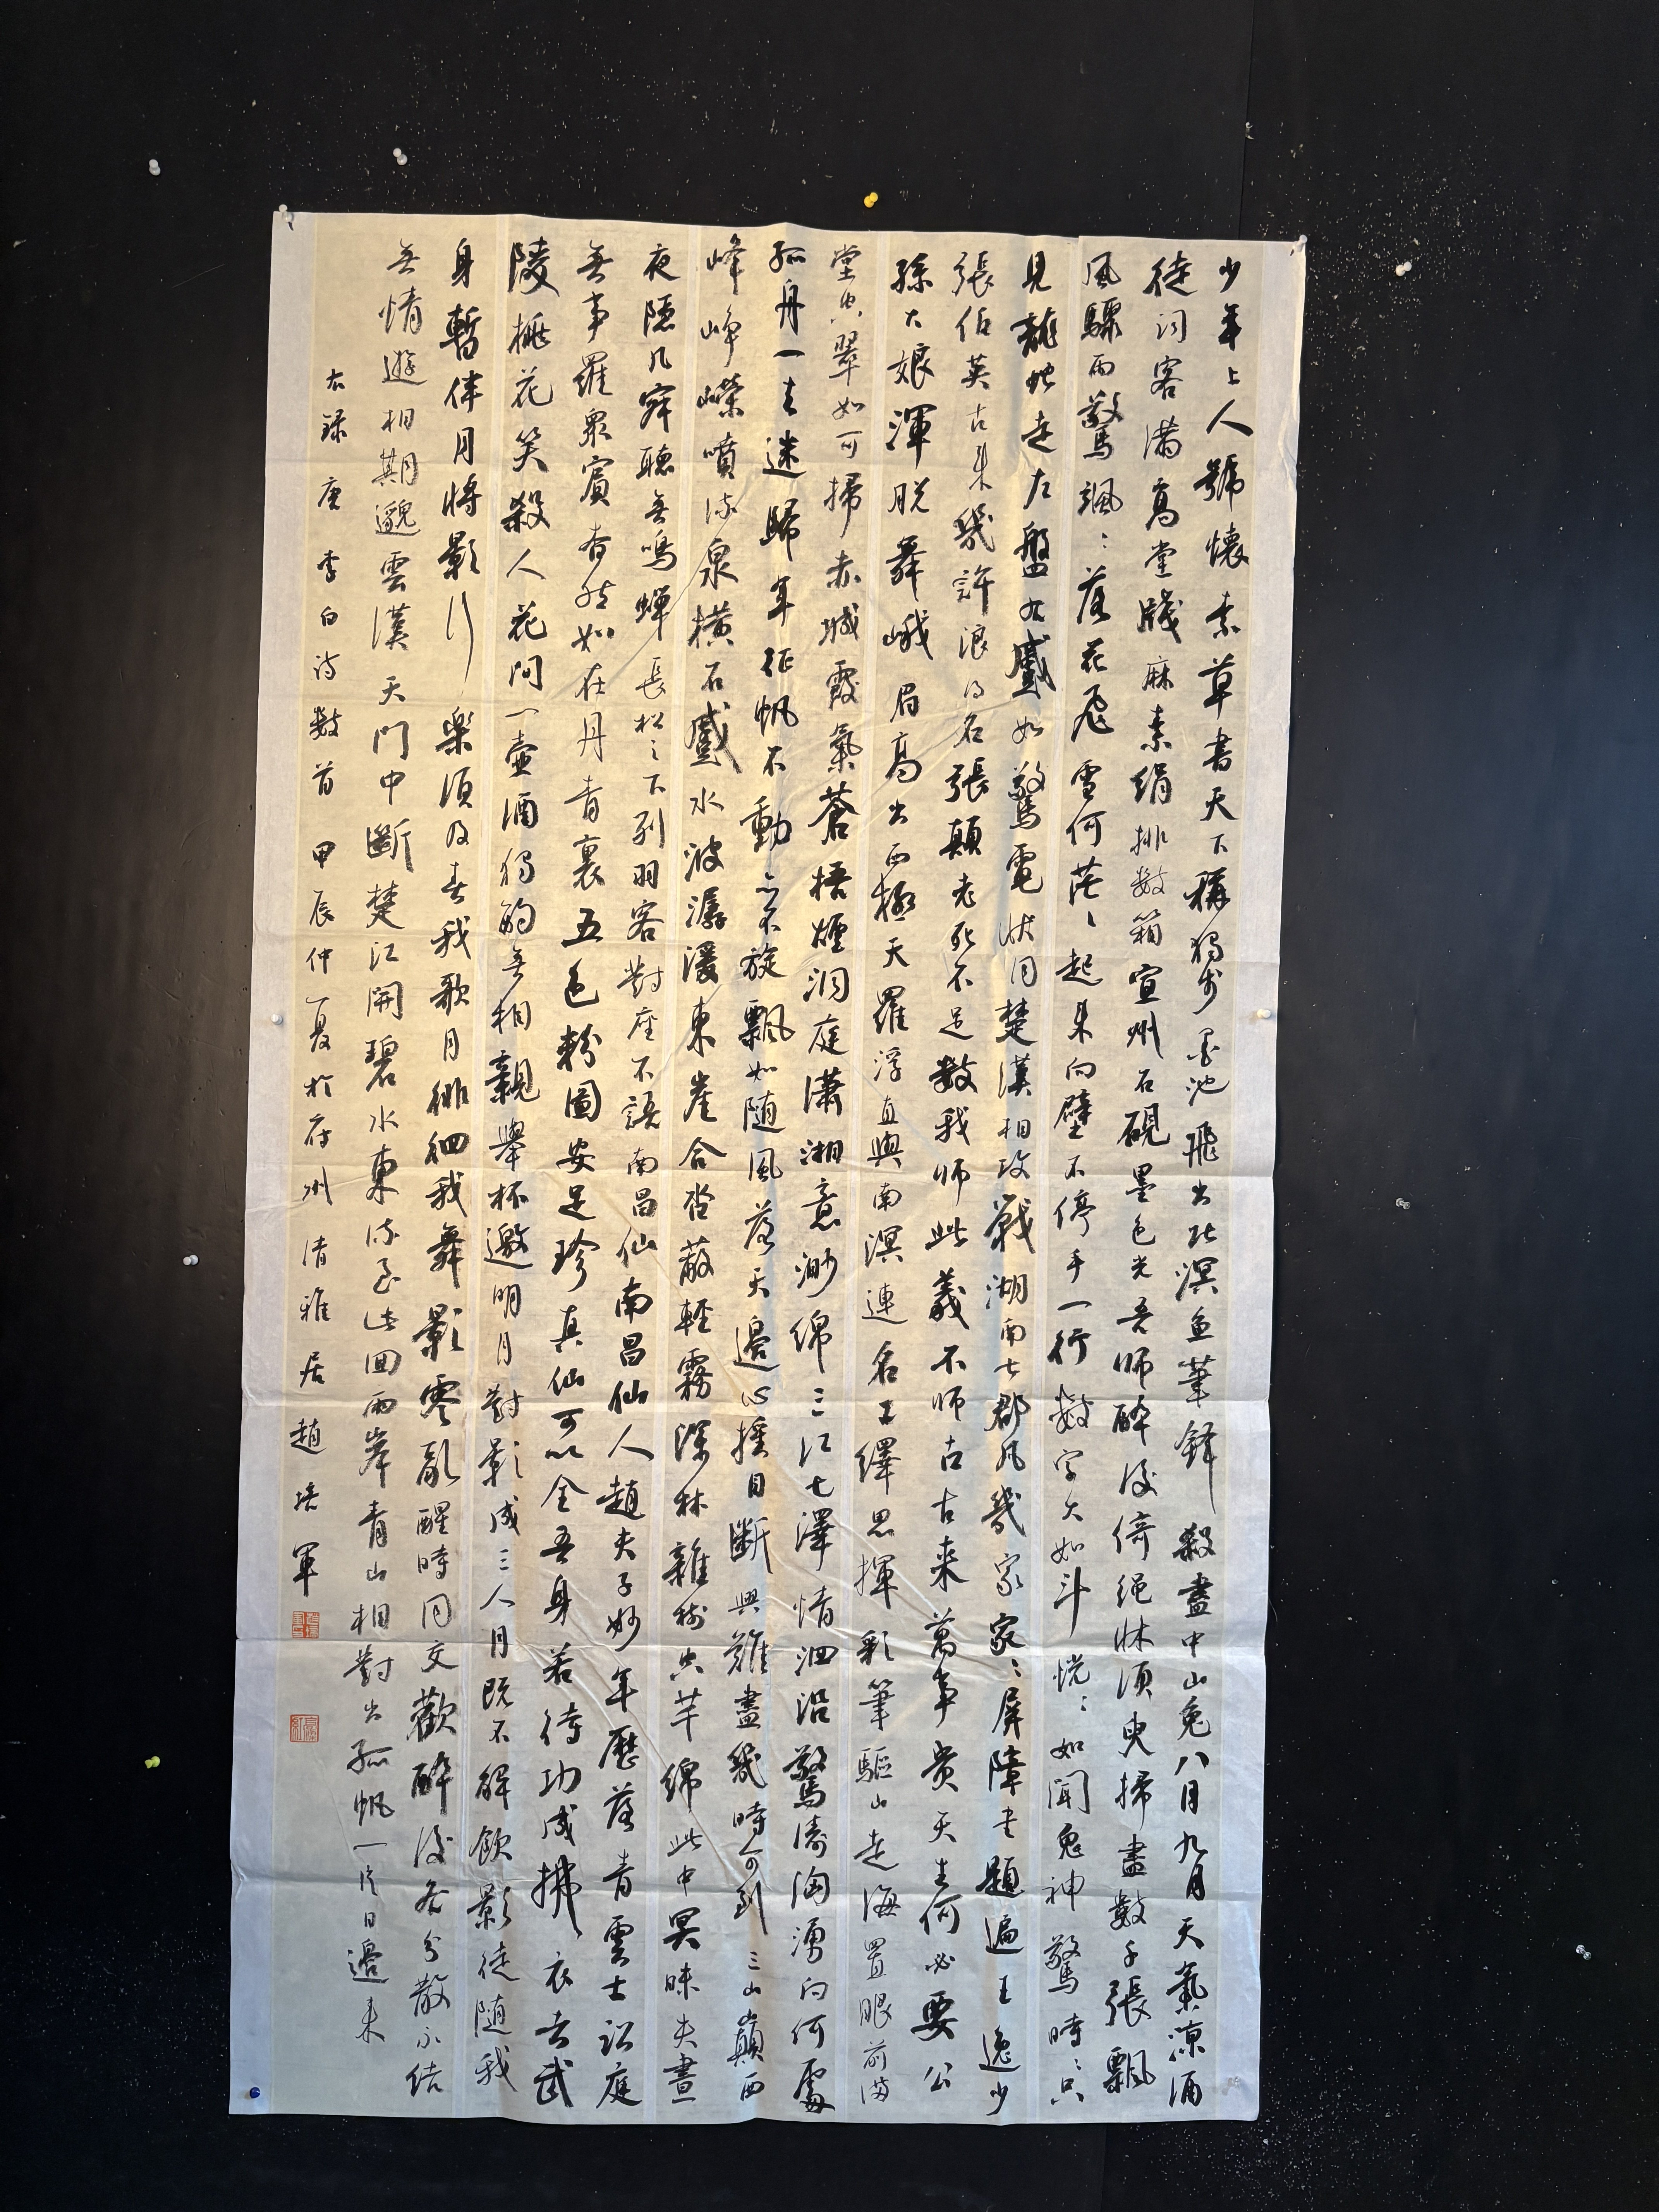 少年上人號懷素草書天下稱獨步墨池飛出北溟魚筆鋒殺盡中山兔八月九月天氣涼酒
徒詞客滿高堂牋麻素絹排數箱宣州石硯墨色光吾師醉後倚繩床須臾掃盡數千張飄
風驟雨驚颯〻落花飛雪何茫〻起來向壁不停手一行數字大如斗恍〻如聞鬼神驚時〻只
見龍蛇走左盤右蹙如驚電狀同楚漢相攻戰湖南七郡凡幾家家〻屏障書題遍王逸少
張伯英古來幾許浪得名張顛老死不足數我師此義不師古古來萬事貴天生何必要公
孫大娘渾脫舞峨眉高出西極天羅浮直與南溟連名工繹思揮彩筆驅山走海置眼前滿
堂空翠如可掃赤城霞氣蒼梧煙洞庭瀟湘意渺綿三江七澤情洄沿驚濤洶湧向何處
孤舟一去迷歸年征帆不動亦不旋飄如隨風落天邊心搖目斷興難盡幾時可到三山巔西
峰崢嶸噴流泉橫石蹙水波潺湲東崖合沓蔽輕霧深林雜樹空芊綿此中冥昧失晝
夜隱几寂聽無鳴蟬長松之下列羽客對座不語南昌仙南昌仙人趙夫子妙年歷落青雲士訟庭
無事羅眾賓杳然如在丹青裏五色粉圖安足珍真仙可以全吾身若待功成拂衣去武
陵桃花笑殺人花間一壺酒獨酌無相親舉杯邀明月對影成三人月既不解飲影徒隨我
身暫伴月將影行樂須及春我歌月徘徊我舞影零亂醒時同交歡醉後各分散永結
無情遊相期邈雲漢天門中斷楚江開碧水東流至此回兩岸青山相對出孤帆一片日邊來
右錄唐李白詩數首甲辰仲夏於府州清雅居趙培軍